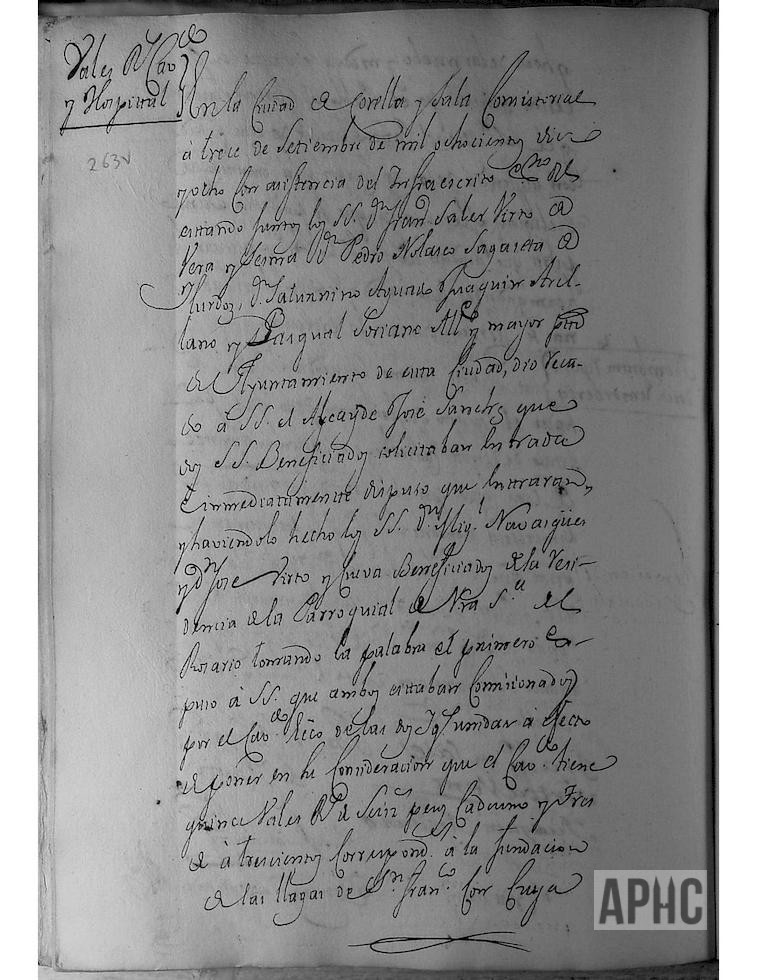 Vales Rs. Cavdo
y Hospital
263v
En la Ciudad de Corella y Sala Consistorial
á trece de Setiembre de mil ochocientos diez
y ocho con asistencia del Infraescrito Esno Rl
estando juntos los SS. Dn. Franco Sales Virto de
Vera y Dn. Pedro Nolasco Sagaseta de
Ylurdoz, Dn. Saturnino Aguado Joaquin Arel-
lano y Pasqual Soriano Alce y mayor parte
del Ayuntamiento de esta Ciudad, dió reca-
do á SS. el Alcayde José Sanchz que
dos SS. Beneficiados solicitaban entrada
é inmediatamente dispuso que entraran,
y haviendolo hecho los SS. Dn. Migl. Novasques
y Dn. José Virto y Cueva Beneficiados de la resi-
dencia de la Parroquial de Ntra Sra. del
Rosario tomando la palabra el primero ex-
puso á SS. que ambos estaban Comisionados
por el Cavdo. Ecco de las dos Ygs. unidas á efecto
de poner en su Consideracion que el Cavdo. tiene
quince Vales Rs. de Seiscs. pesos Cada uno y tres
de á trescientos Correspond. á la fundacion
de las llagas de Sn. Franco. Con Cuya
APHC